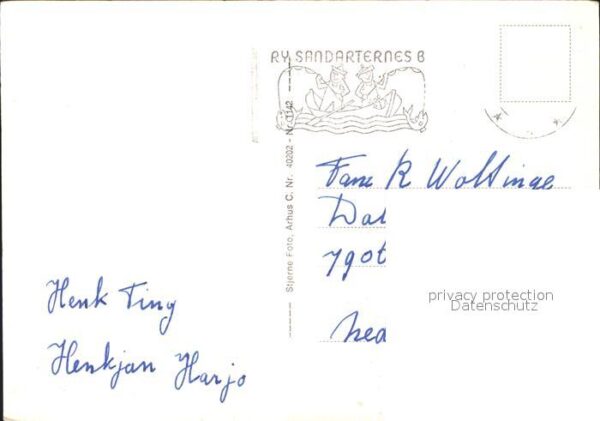 RY SANDARTERNES B
Stjerne Foto, Arhus C. Nr. 40202 - Nr. 1142
Fam R Woltinge
Dal
ygot
nea
privacy protection
Datenschutz
Henk Tiny
Henkjan Harjo